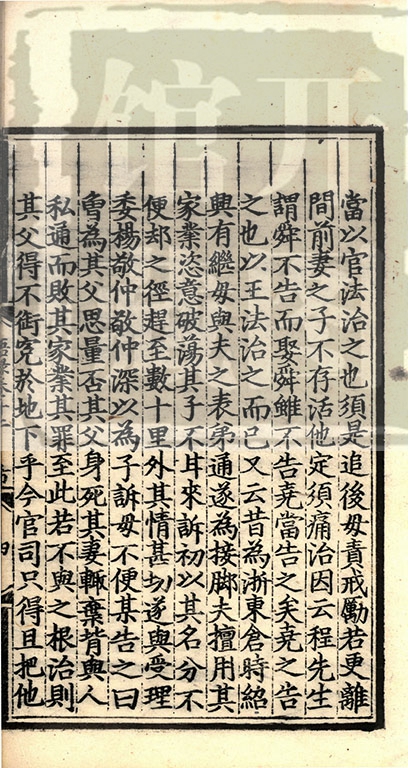 當以官法治之也須是追後母責戒勵若更離
間前妻之子不存活他定須痛治因云程先生
謂舜不告而娶舜雖不告堯當告之矣堯之告
之也以王法治之而已又云昔為浙東倉時紹
興有繼母與夫之表弟通遂為接脚夫擅用其
家業恣意破蕩其子不甘來訴初以其名分不
便却之徑趕至數十里外其情甚切遂與受理
委楊敬仲敬仲深以為子訴母不便某告之曰
曾為其父思量否其父身死其妻輒棄背與人
私通而敗其家業其罪至此若不與之根治則
其父得不銜寃於地下乎今官司只得且把他